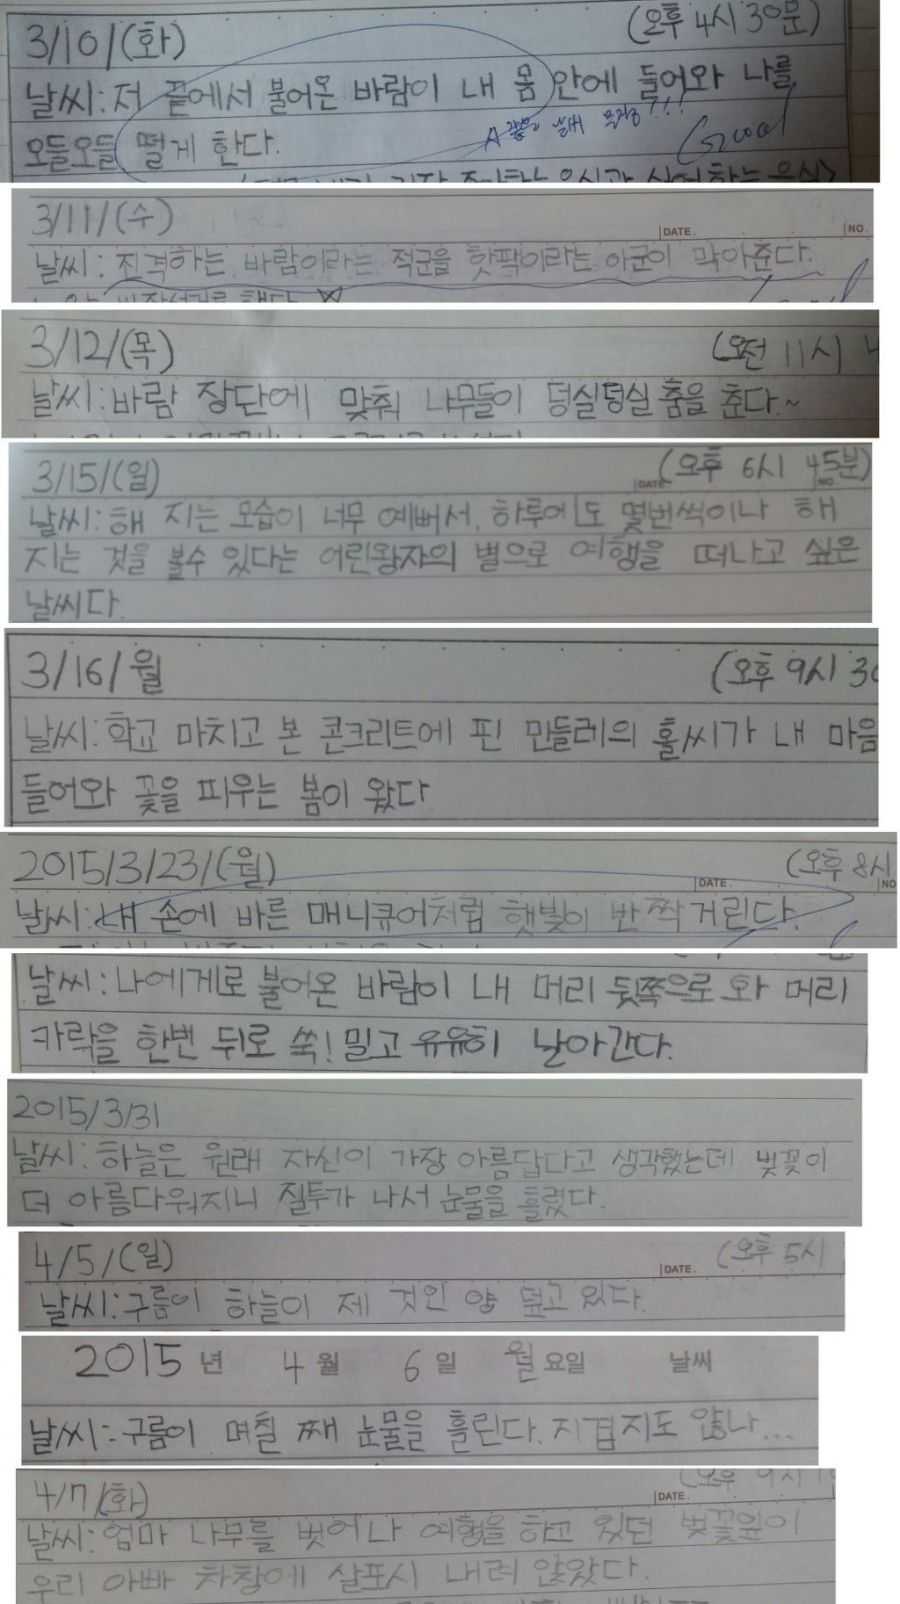 3/10/(화) (오후 4시 30분)
날씨: 저 끝에서 불어온 바람이 내 몸 안에 들어와 나를
오들오들 떨게 한다.
Good
3/11/(수) DATE. NO.
날씨: 진격하는 바람이라는 적군을 핫팩이라는 아군이 막아준다.
3/12/(목) (오전 11시
날씨: 바람 장단에 맞춰 나무들이 덩실덩실 춤을 춘다.~
3/15/(일) DATE (오후 6시 45분)
날씨: 해 지는 모습이 너무 예뻐서, 하루에도 몇번씩이나 해
지는 것을 볼수 있다는 어린왕자의 별으로 여행을 떠나고 싶은
날씨다.
3/16/월 (오후 9시 30
날씨: 학교 마치고 본 콘크리트에 핀 민들레의 홀씨가 내 마음
들어와 꽃을 피우는 봄이 왔다
2015/3/23/(월) DATE. (오후 8시 NO
날씨: 내 손에 바른 매니큐어처럼 햇빛이 반짝거린다.
날씨: 나에게로 불어온 바람이 내 머리 뒷쪽으로 와 머리
카락을 한번 뒤로 쑥! 밀고 유유히 날아간다.
2015/3/31
날씨: 하늘은 원래 자신이 가장 아름답다고 생각했는데 벚꽃이
더 아름다워지니 질투가 나서 눈물을 흘렸다.
4/5/(일) DATE. (오후 5시
날씨: 구름이 하늘이 제 것인 양 덮고 있다.
2015 년 4 월 6 일 월요일 날씨
날씨: 구름이 며칠 째 눈물을 흘린다. 지겹지도 않나...
4/7/(화) DATE. (오후 9시
날씨: 엄마 나무를 벗어나 여행을 하고 있던 벚꽃잎이
우리 아빠 차창에 살포시 내려 앉았다.